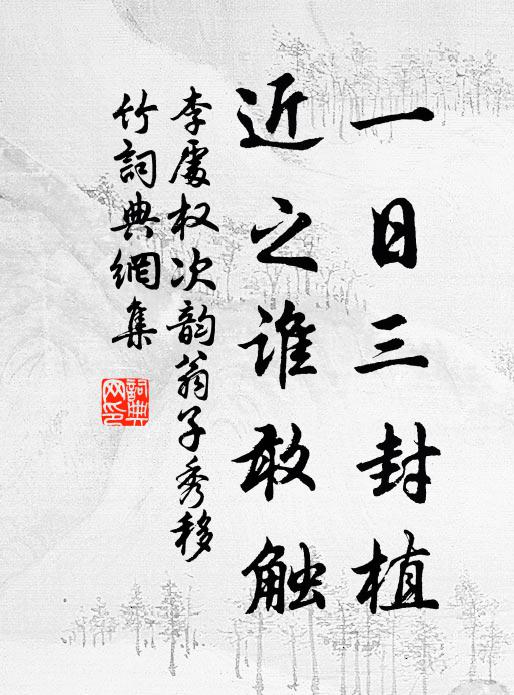 一日三封植
近之谁敢触
李處权次韵翁子秀移
竹詞典網集
詞典
网印